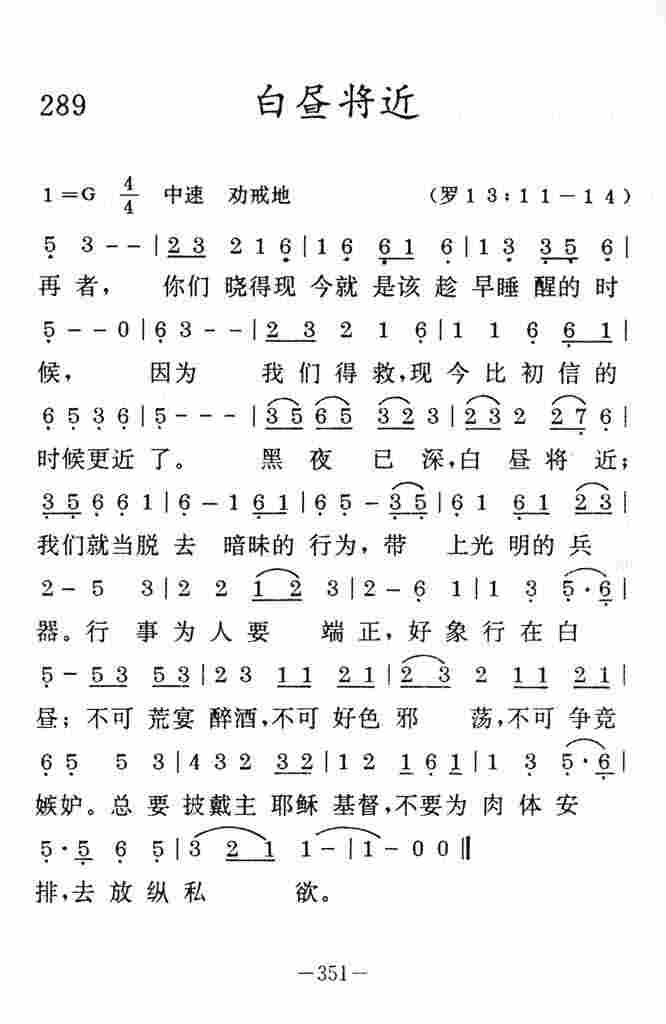 289 白昼将近
1=G 4/4 中速 劝戒地 (罗13:11-14)
5 3 - - | 2 3 2 1 6 | 1 6 6 1 6 | 1 3 3 5 6 |
再者, 你们 晓得现 今就 是该 趁 早睡 醒的 时
5 - - 0 | 6 3 - - | 2 3 2 1 6 | 1 1 6 6 1 |
候, 因为 我们得救,现今比初信的
6 5 3 6 | 5 - - - | 3 5 6 5 3 2 3 | 2 3 2 2 7 6 |
时候更近了。 黑夜已深,白昼将近;
3 5 6 6 1 | 6 - 1 6 1 | 6 5 - 3 5 | 6 1 6 1 2 3 |
我们就当脱去 暗昧的行为,带 上光明的兵
2 - 5 3 | 2 2 1 2 3 | 2 - 6 1 | 1 3 5 · 6 |
器。行 事为人要 端正,好象行在白
5 - 5 3 5 3 | 2 3 1 1 2 1 | 2 3 2 1 1 2 1 |
昼; 不可 荒宴 醉酒,不可 好色 邪 荡,不可 争竞
6 5 5 3 | 4 3 2 3 2 | 1 2 1 6 1 | 1 3 5 · 6 |
嫉妒。总 要 披戴主 耶稣 基督,不要为 肉 体 安
5 · 5 6 5 | 3 2 1 1 - | 1 - 0 0 ‖
排,去 放 纵 私 欲。
—351—